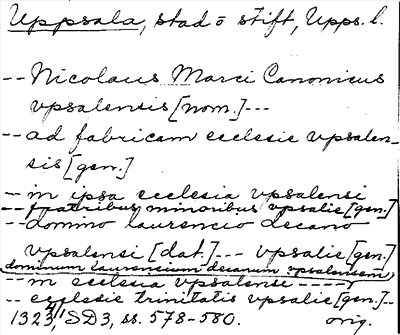 Uppsala, stad o stift, Upps. l.
-- Nicolaus Marci Canonicus
vpsalensis [nom.] ---
-- ad fabricam ecclesie vpsalen-
sis [gen.]
-- in ipsa ecclesia vpsalensi
-- fratribus minoribus vpsalie [gen.]
-- domino laurencio decano
vpsalensi [dat.] --- vpsalie [gen.]
dominum laurencium decanum vpsalensem
-- in ecclesia vpsalense ----
-- ecclesie trinitatis vpsalie [gen.] --
1323, SD3, ss. 578-580. orig.